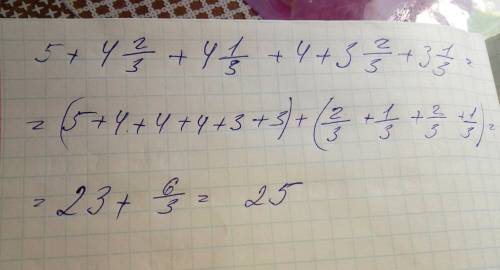 5 + 4 2/3 + 4 1/3 + 4 + 3 2/3 + 3 1/3 =
= (5 + 4 + 4 + 4 + 3 + 3) + (2/3 + 1/3 + 2/3 + 1/3) =
= 23 + 6/3 = 25